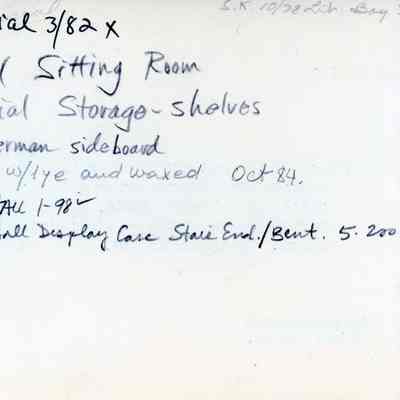 S.K 10/78 Lib. Bay
ial 3/82 x
Sitting Room
ial Storage-shelves
erman sideboard
w/lye and waxed Oct 84.
ALL 1-98✓
all Display Case Stair End./Bent. 5.200